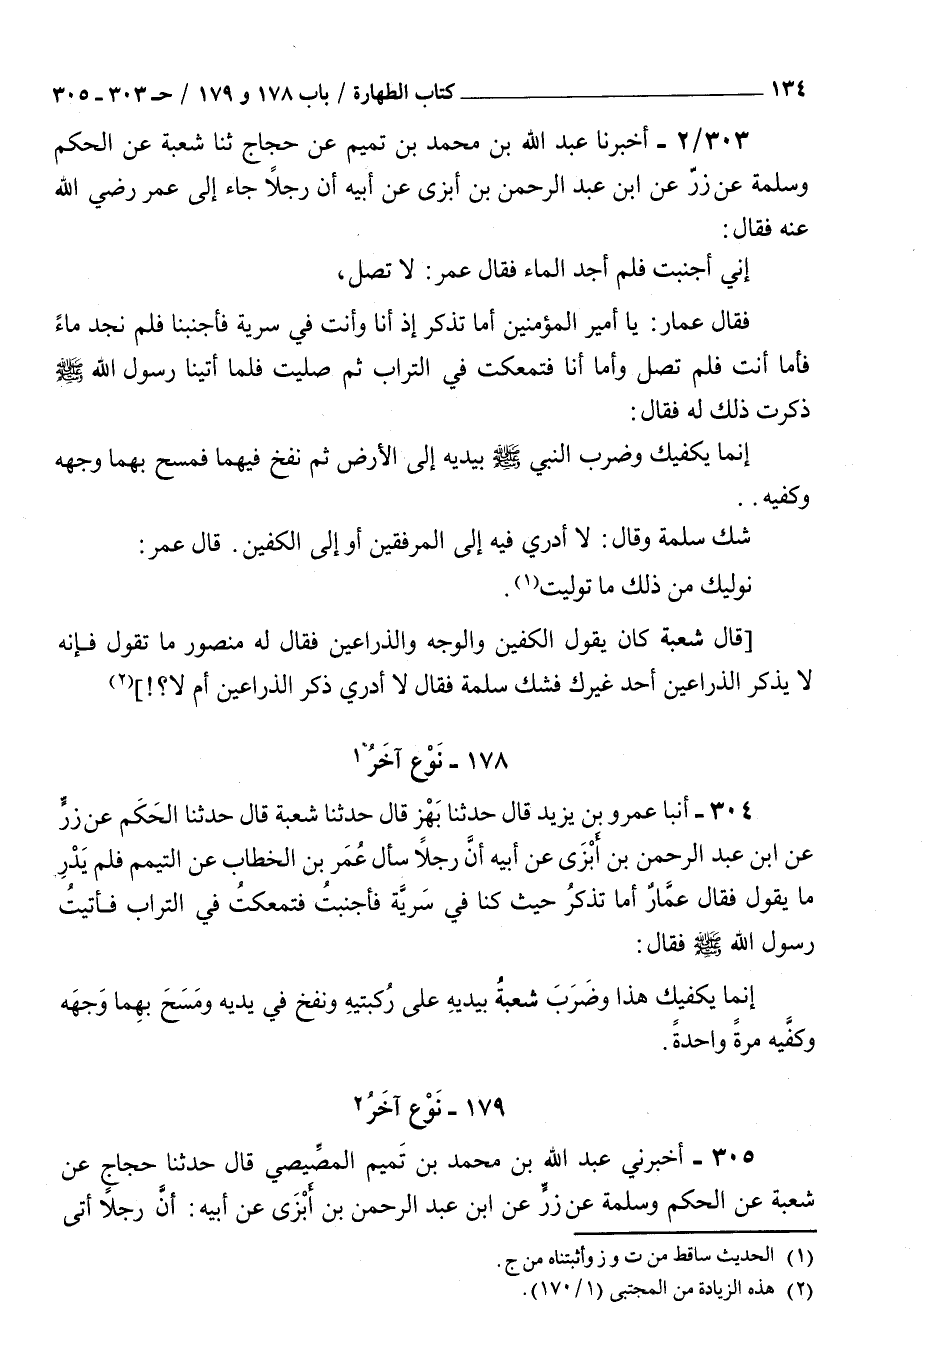 ١٣٤ ــــــ كتاب الطهارة / باب ١٧٨ و ١٧٩ / حـ ٣٠٣ ـ ٣٠٥
٢/٣٠٣ ـ أخبرنا عبد الله بن محمد بن تميم عن حجاج ثنا شعبة عن الحكم
وسلمة عن زرّ عن ابن عبد الرحمن بن أبزى عن أبيه أن رجلاً جاء إلى عمر رضي الله
عنه فقال:
إني أجنبت فلم أجد الماء فقال عمر: لا تصل،
فقال عمار: يا أمير المؤمنين أما تذكر إذ أنا وأنت في سرية فأجنبنا فلم نجد ماءً
فأما أنت فلم تصل وأما أنا فتمعكت في التراب ثم صليت فلما أتينا رسول الله ﷺ
ذكرت ذلك له فقال:
إنما يكفيك وضرب النبي ﷺ بيديه إلى الأرض ثم نفخ فيهما فمسح بهما وجهه
وكفيه . .
شك سلمة وقال: لا أدري فيه إلى المرفقين أو إلى الكفين. قال عمر:
نوليك من ذلك ما توليت(١).
[قال شعبة كان يقول الكفين والوجه والذراعين فقال له منصور ما تقول فـإنه
لا يذكر الذراعين أحد غيرك فشك سلمة فقال لا أدري ذكر الذراعين أم لا؟!](٢)
١٧٨ ـ نَوْع آخَرُ ١
٣٠٤ ـ أنبا عمرو بن يزيد قال حدثنا بَهْز قال حدثنا شعبة قال حدثنا الحَكَم عن زرٍّ
عن ابن عبد الرحمن بن أَبْزَى عن أبيه أنَّ رجلاً سأل عُمَر بن الخطاب عن التيمم فلم يَدْرِ
ما يقول فقال عمَّارٌ أما تذكرُ حيث كنا في سَريَّة فأجنبتُ فتمعكتُ في التراب فـأتيتُ
رسول الله ﷺ فقال:
إنما يكفيك هذا وضَرَبَ شعبةُ بيديهِ على رُكبتيهِ ونفخ في يديه ومَسَحَ بهِما وَجهَه
وكفَّيه مرةً واحدةً.
١٧٩ ـ نَوْع آخَرُ ٢
٣٠٥ ـ أخبرني عبد الله بن محمد بن تَميم المصِّيصي قال حدثنا حجاج عن
شعبة عن الحكم وسلمة عن زرٍّ عن ابن عبد الرحمن بن أَبْزَى عن أبيه: أنَّ رجلاً أتى
(١) الحديث ساقط من ت و ز وأثبتناه من ج.
(٢) هذه الزيادة من المجتبى (١/ ١٧٠).